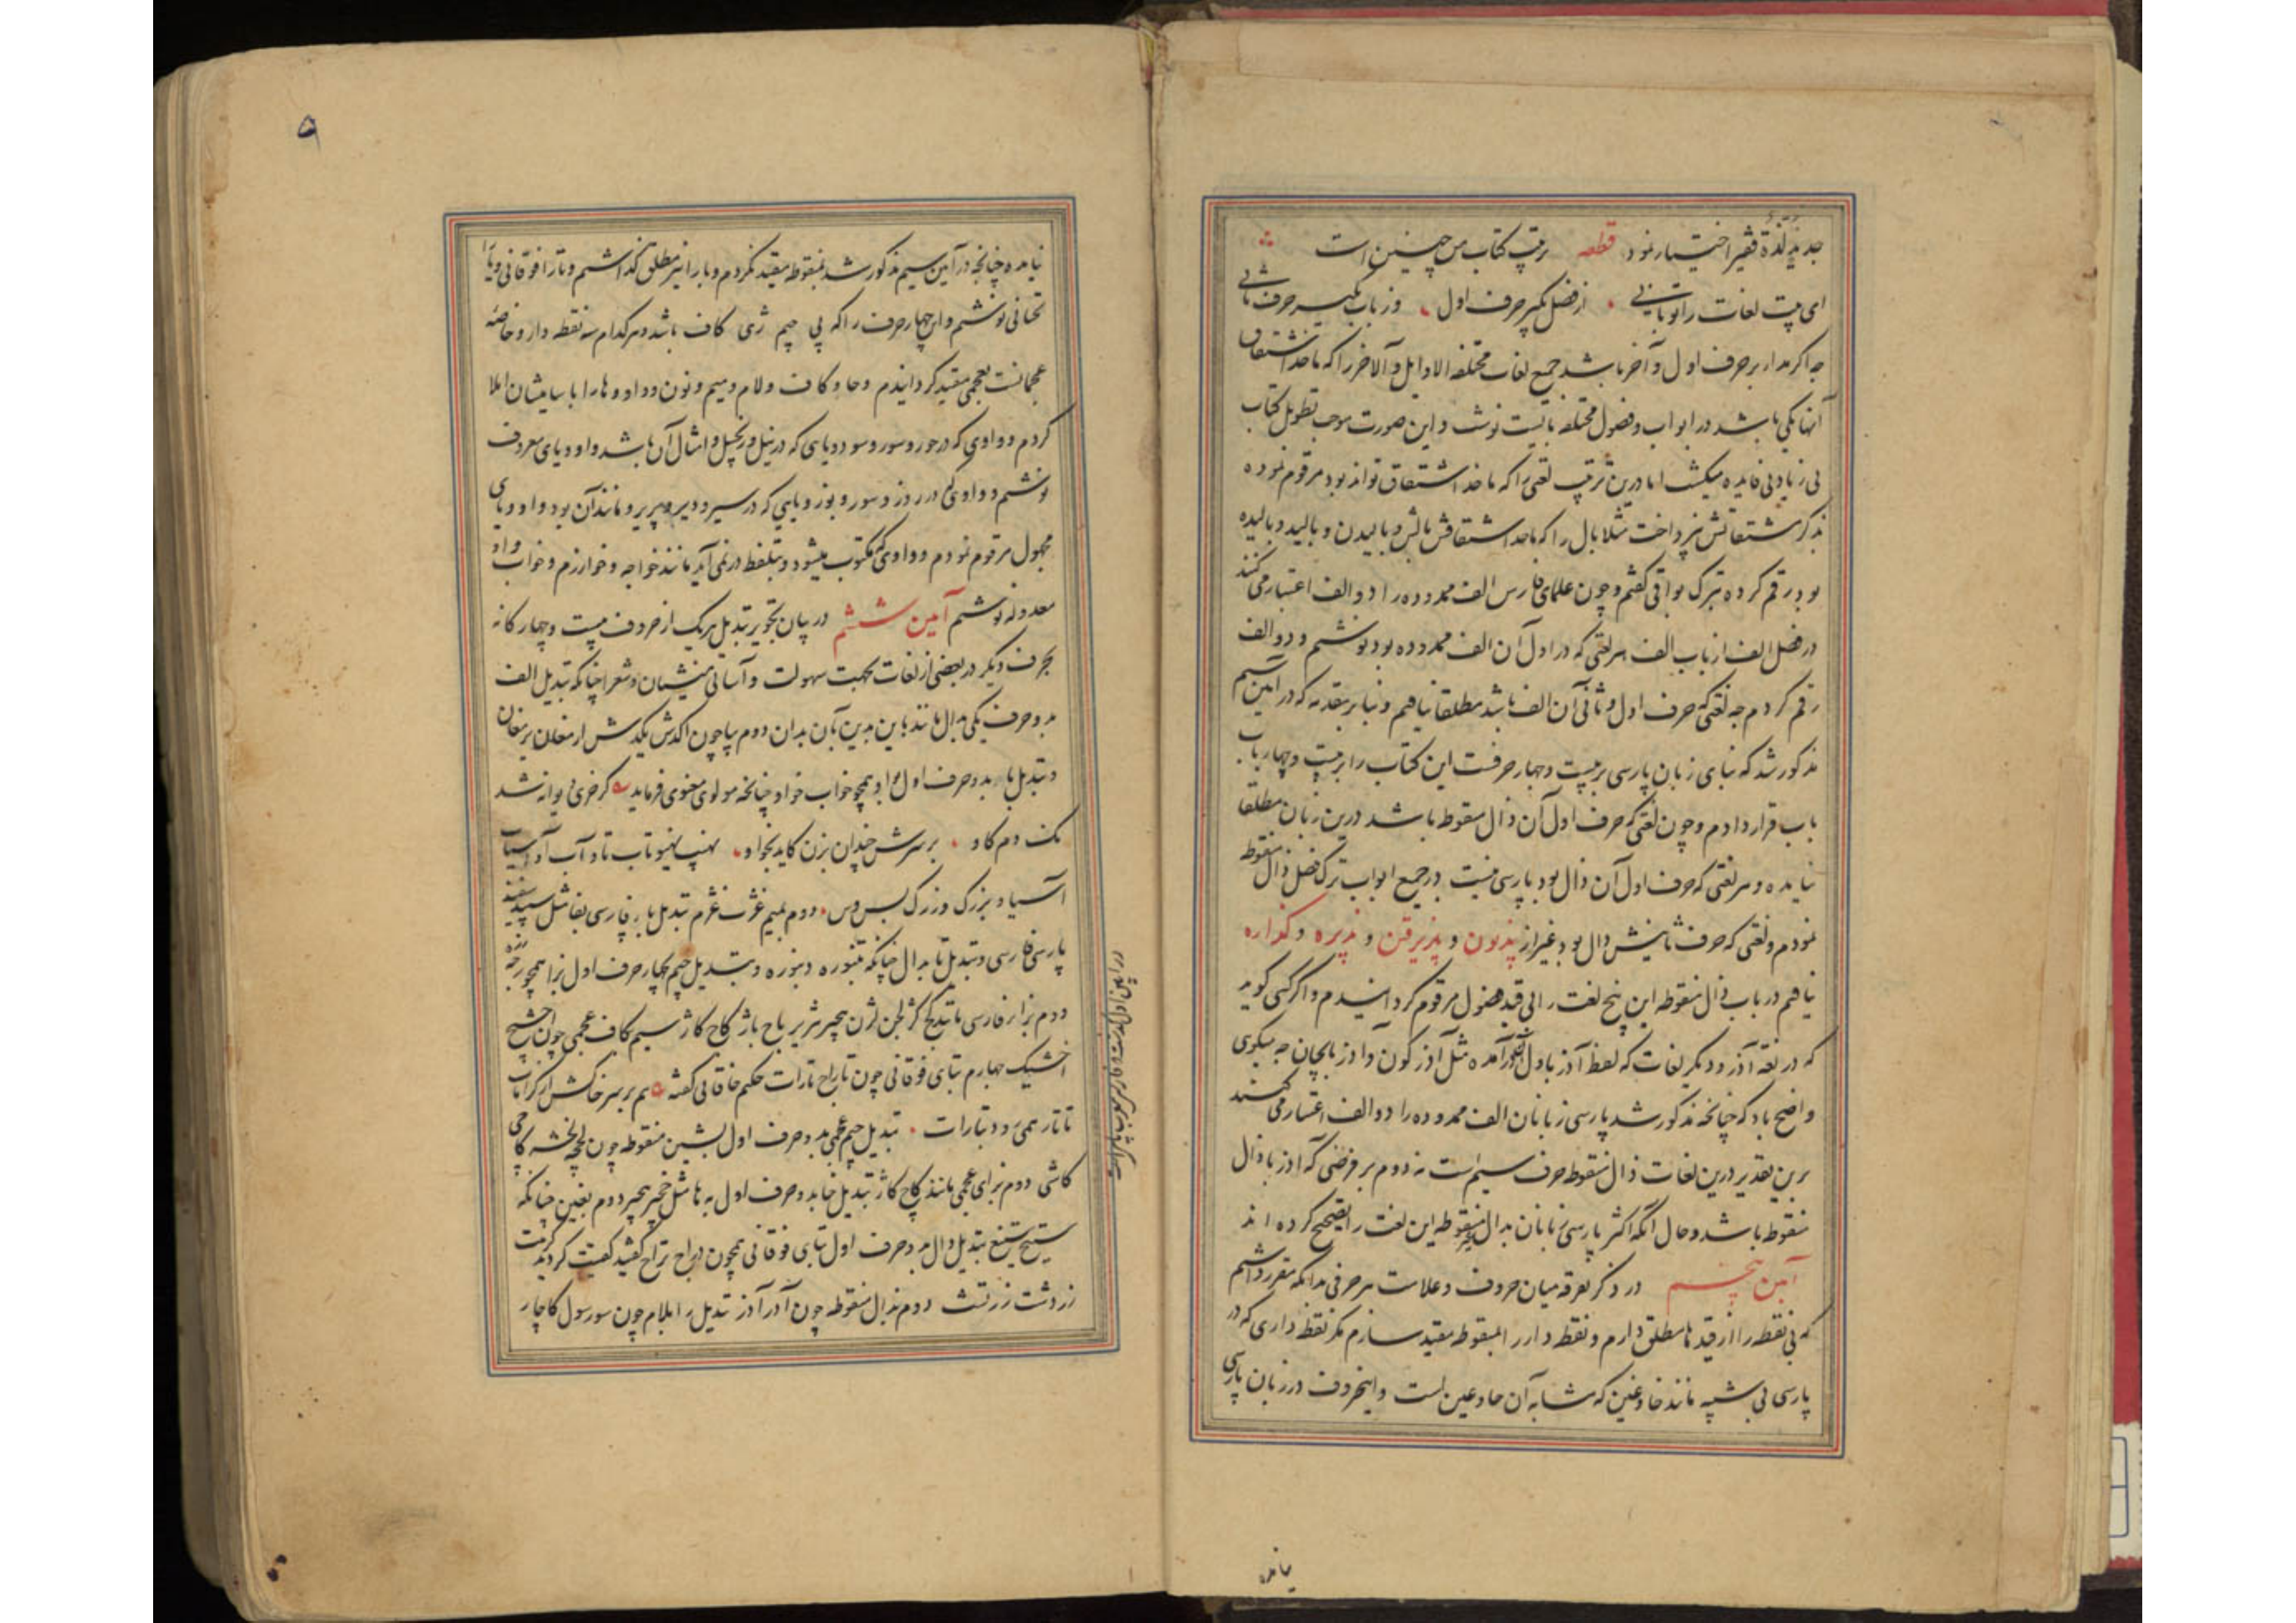 جدید لذة فقیر اختیار نمود قطعه رتب کتاب من چنین است
ای بیت لغات را توتا بنی از فصل بگیر حرف اول وز باب بگیر حرف ثانی
چه اگر مدار بر حرف اول و آخر باشد جمع لغات مختلفه الاوایل و الاخر را که ماخذ اشتقاق
آنها یکی باشد در ابواب و فصول مختلفه بایست نوشت و این صورت موجب تطویل کتاب
بی زیادتی فایده میگشت اما درین ترتیب لغتی را که ماخذ اشتقاق تواند بود مرقوم نموده
بذکر مشتقاتش نپرداخت مثلا بال را که ماخذ اشتقاقش بالش و بالیدن و بالید و بالیده
بود رقم کرده بترک بواقی گفتم و چون علمای فارس الف ممدوده را دو الف اعتبار می کنند
در فصل الف از باب الف هر لغتی که در اول آن الف ممدوده بود نوشتم و دو الف
رقم کردم چه لغتی که حرف اول و ثانی آن الف باشد مطلقا نیافتم و بنا بر مقدمه که در آیین سیم
مذکور شد که بنای زبان پارسی بر بیست و چهار حرفست این کتاب را بر بیست و چهار باب
باب قرار دادم و چون لغتی که حرف اول آن ذال منقوط باشد درین زبان مطلقا
نیامده و هر لغتی که حرف اول آن ذال بود پارسی نیست در جمیع ابواب ترک فصل ذال منقوط
نمودم و لغتی که حرف ثانیش ذال بود غیر از پذیرن و پذیرفتن و پذیره و گذاره
نیافتم در باب ذال منقوطه این پنج لغت را بی قید فصول مرقوم گردانیدم و اگر کسی گوید
که در لغة آذر و دیگر لغات که لفظ آذر باول آن در آمده مثل آذر گون و آذربایجان چه میگوی
واضح باد که چنانچه مذکور شد پارسی زبانان الف ممدوده را دو الف اعتبار می کنند
برین تقدیر درین لغات ذال منقوطه حرف سیم است نه دوم بر فرضی که آذر با ذال
منقوط باشد و حال آنکه اکثر پارسی زبانان بدال غیر منقوطه این لغت را تصحیح کرده اند
آیین پنجم در ذکر تفرقه میان حروف و علامت هر حرفی بدانکه مقرر داشتم
که بی نقطه را از قیدها مطلق دارم و نقطه دار را بمنقوطه مقید سازم مگر نقطه داری که در
پارسی بی شبیه مانند خا و غین که مشابه آن حا و عین است و اینحروف در زبان پارسی
نیامده
نیامده چنانچه در آیین سیم مذکور شد بمنقوطه مقید نکردم و با را نیز مطلق گذاشتم و تا را فوقانی و یا را
تحتانی نوشتم و این چهار حرف را که پی چیم ژی گاف باشد و هر کدام سه نقطه دار و خاصه
عجمانست بعجمی مقید گردانیدم و حا و کاف و لام و میم و نون و واو و ها را با سامیشان املا
کردم و واوی که در حور و سور و سود و یایی که در نیل و زنجبیل و امثال آن باشد واو و یای معروف
نوشتم و واوی که در روز و سور و بوز و یایی که در سیر و دیر و پریر و مانند آن بود واو و یای
مجهول مرقوم نمودم و واوی که مکتوب میشود و بتلفظ در نمی آید مانند خواجه و خوارزم و خواب واو
معدوله نوشتم آیین ششم در بیان تجویز تبدیل هر یک از حروف بیست و چهارگانه
بحرف دیگر در بعضی از لغات بجهت سهولت و آسانی منشیان و شعرا چنانکه تبدیل الف
بدو حرف یکی بدال مانند باین بدین بآن بدان دوم بیا چون اکدش یکدش ارمغان یرمغان
و تبدیل با بدو حرف اول بواو همچو خواب خواو چنانچه مولوی معنوی فرماید گر خری دیوانه شد
نک دم گاو بر سرش چندان بزن کاید بخواو نهیب نهیو تاب تاو آب آو آسیاب
آسیاو بزرگ وزرگ بس وس دوم بمیم غژب غژم تبدیل با فارسی بفا مثل سپید سفید
پارسی فارسی و تبدیل تا بدال چنانکه تنبوره دنبوره و تبدیل جیم بچهار حرف اول بزا همچو رجه رزه
دوم بزا فارسی مانند کج کژ لجن لژن هجیر هژیر باج باژ کاج کاژ سیم بکاف عجمی چون اخشیج
اخشیک چهارم بتای فوقانی چون تاراج تارات حکیم خاقانی گفته
تاتار همی رود بتارات تبدیل چیم عجمی بدو حرف اول بشین منقوطه چون لخچه لخشه کاچی
کاشی دوم بزای عجمی مانند کاج کاژ تبدیل خا بدو حرف اول به ها مثل خجیر هجیر دوم بغین چنانکه
ستیخ ستیغ تبدیل دال بدو حرف اول بتای فوقانی همچون دراج تراج گفتید گفتیت کردید کردیت
زردشت زرتشت دوم بذال منقوطه چون آدر آذر تبدیل را بلام چون سور سول کاچار